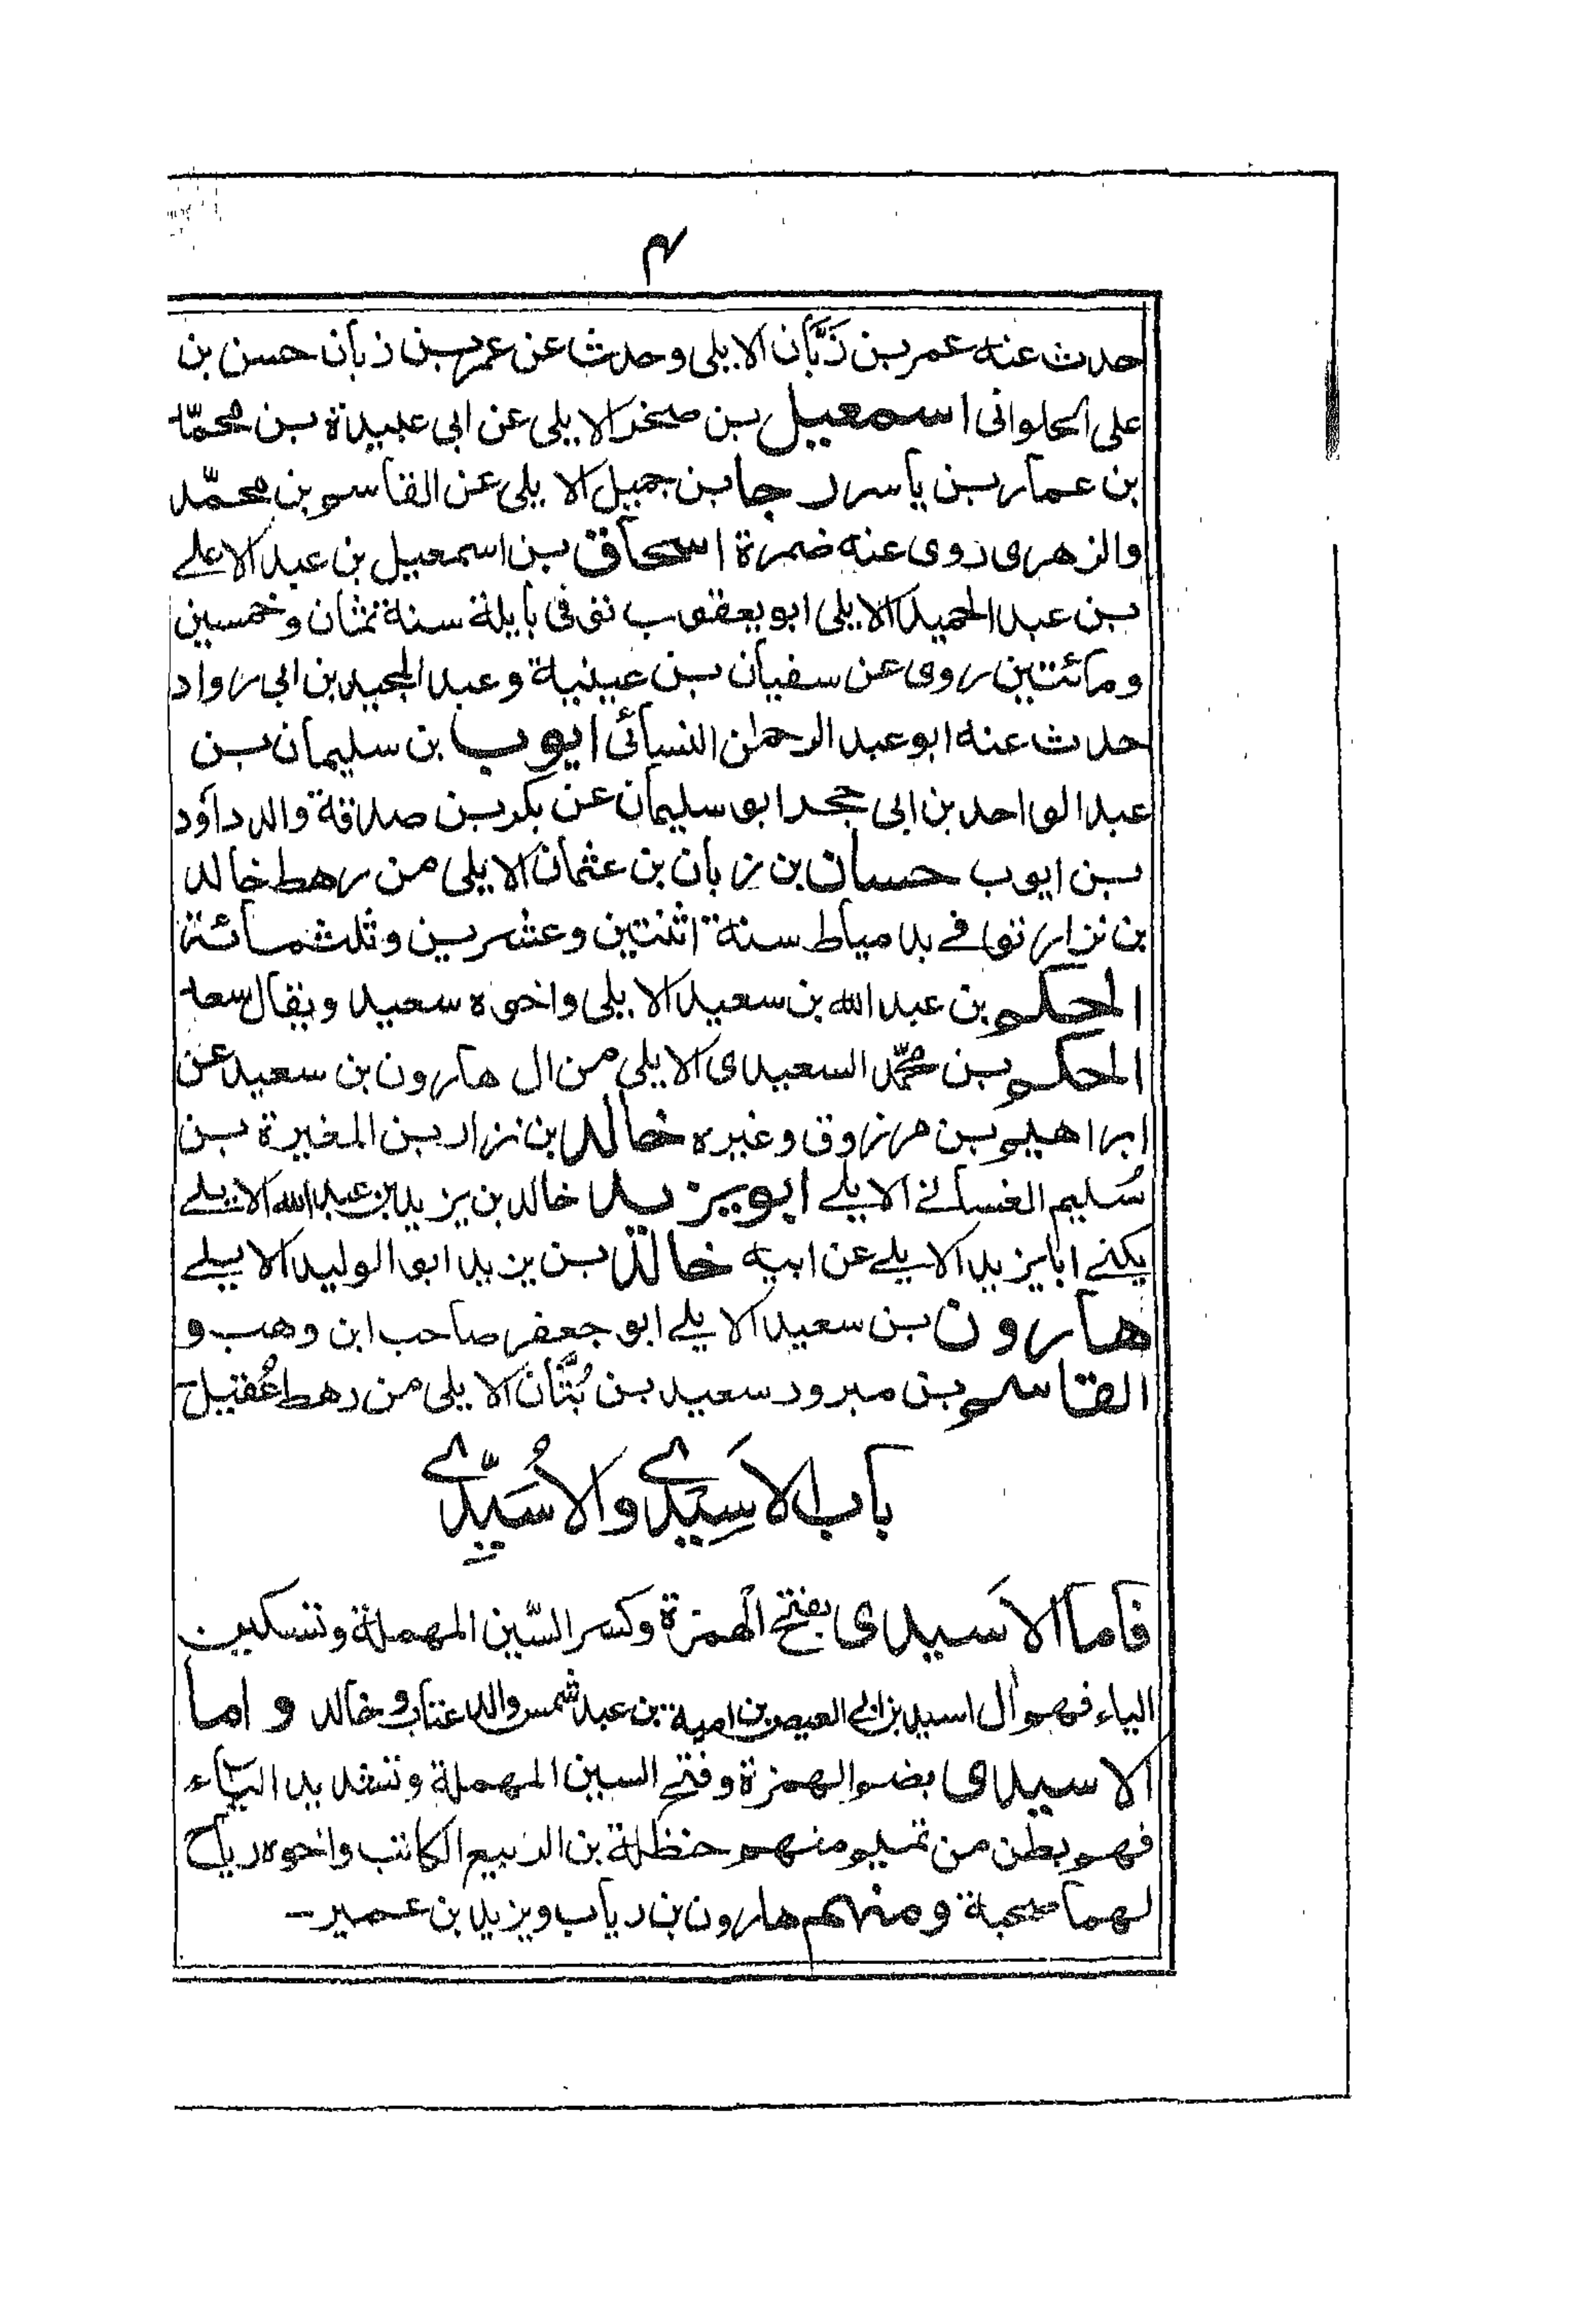 ۴
حدث عنه عمر بن زَبَّان الايلى وحدث عن عمر بن زبان حسن بن
على الحلوانى اسمعيل بن صخر الايلى عن ابى عبيدة بن محمّد
بن عمار بن ياسر رجا بن جميل الايلى عن القاسم بن محمّد
والزهرى روى عنه ضمرة اسحاق بن اسمعيل بن عبد الاعلے
بن عبد الحميد الايلى ابو يعقوب توفى بايلة سنة ثمان وخمسين
ومائتين روى عن سفيان بن عيينة وعبد المجيد بن ابى رواد
حدث عنه ابو عبد الرحمٰن النسائى ايوب بن سليمان بن
عبد الواحد بن ابى حجر ابو سليمان عن بكر بن صدقة والد داؤد
بن ايوب حسان بن زبان بن عثمان الايلى من رهط خالد
بن نزار توفے بدمياط سنة اثنتين وعشرين وثلثمائة
الحكم بن عبد الله بن سعيد الايلى واخوه سعيد ويقال سعد
الحكم بن محمّد السعيدى الايلى من ال هارون بن سعيد عن
ابراهيم بن مرزوق وغيره خالد بن نزار بن المغيرة بن
سُليم الغسانے الايلے ابو يزيد خالد بن يزيد بن عبد الله الايلے
يكنے ابا يزيد الايلے عن ابيه خالد بن يزيد ابو الوليد الايلے
هارون بن سعيد الايلے ابو جعفر صاحب ابن وهب و
القاسم بن مبرور سعيد بن بُنَّان الايلى من رهط عُقيل
باب الاَسِيْدِے والاُسَيِّدِے
فاما الاَسيدى بفتح الهمزة وكسر السّين المهملة وتسكين
الياء فهم اٰل اسيد بن ابى العيص بن امية بن عبد شمس والد عتاب وخالد واما
الاسيدى بضم الهمزة وفتح السين المهملة وتشديد اليّاء
فهم بطن من تميم منهم حنظلة بن الربيع الكاتب واخوه رياح
لهما صحبة ومنهم هارون بن رياب ويزيد بن عمير –